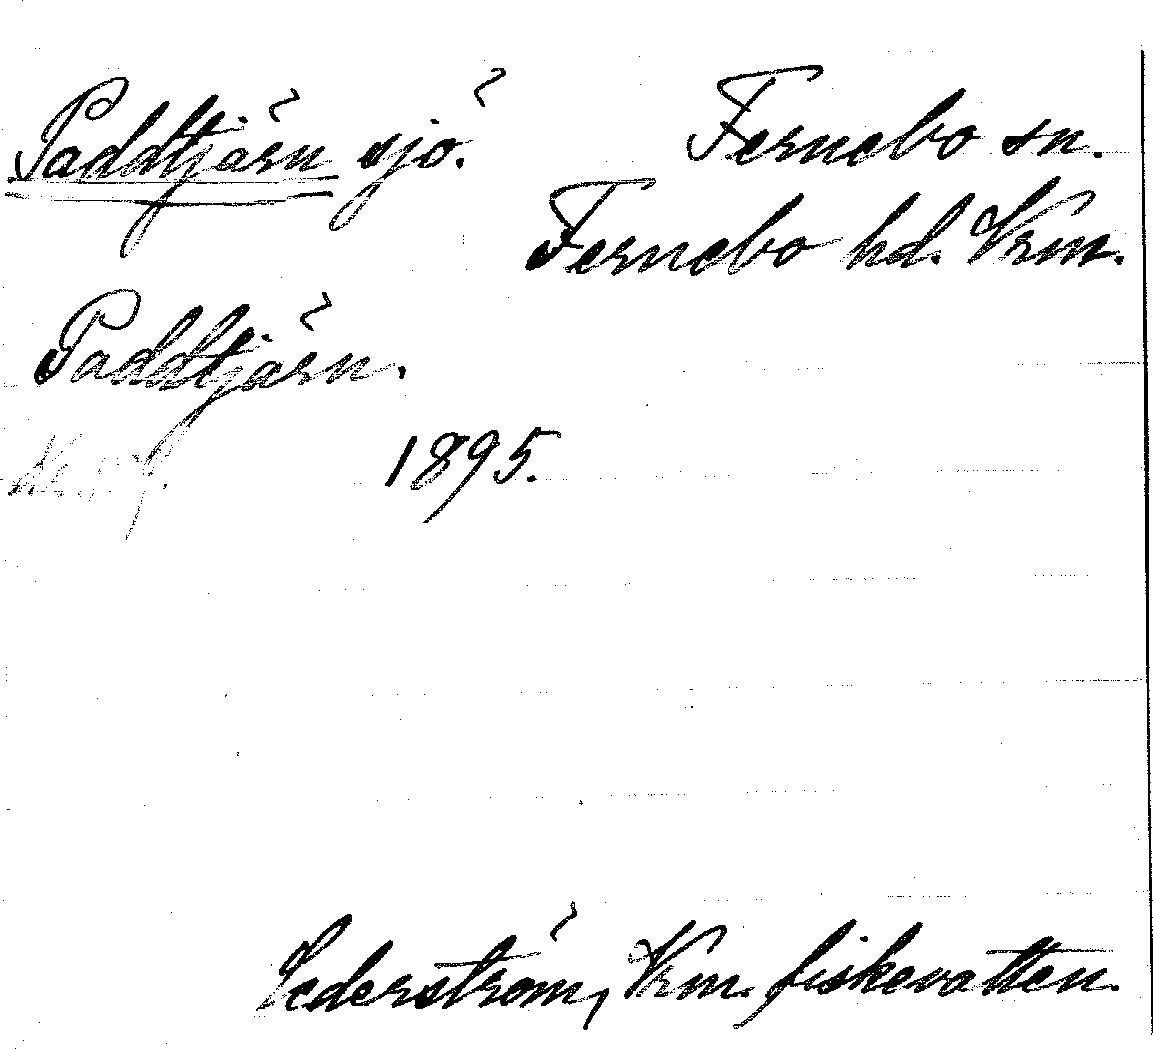 Paddtjärn sjö. Fernebo sn.
Fernebo hd. Vrm.
Paddtjärn.
1895.
Cederström, Vrm. fiskevatten.